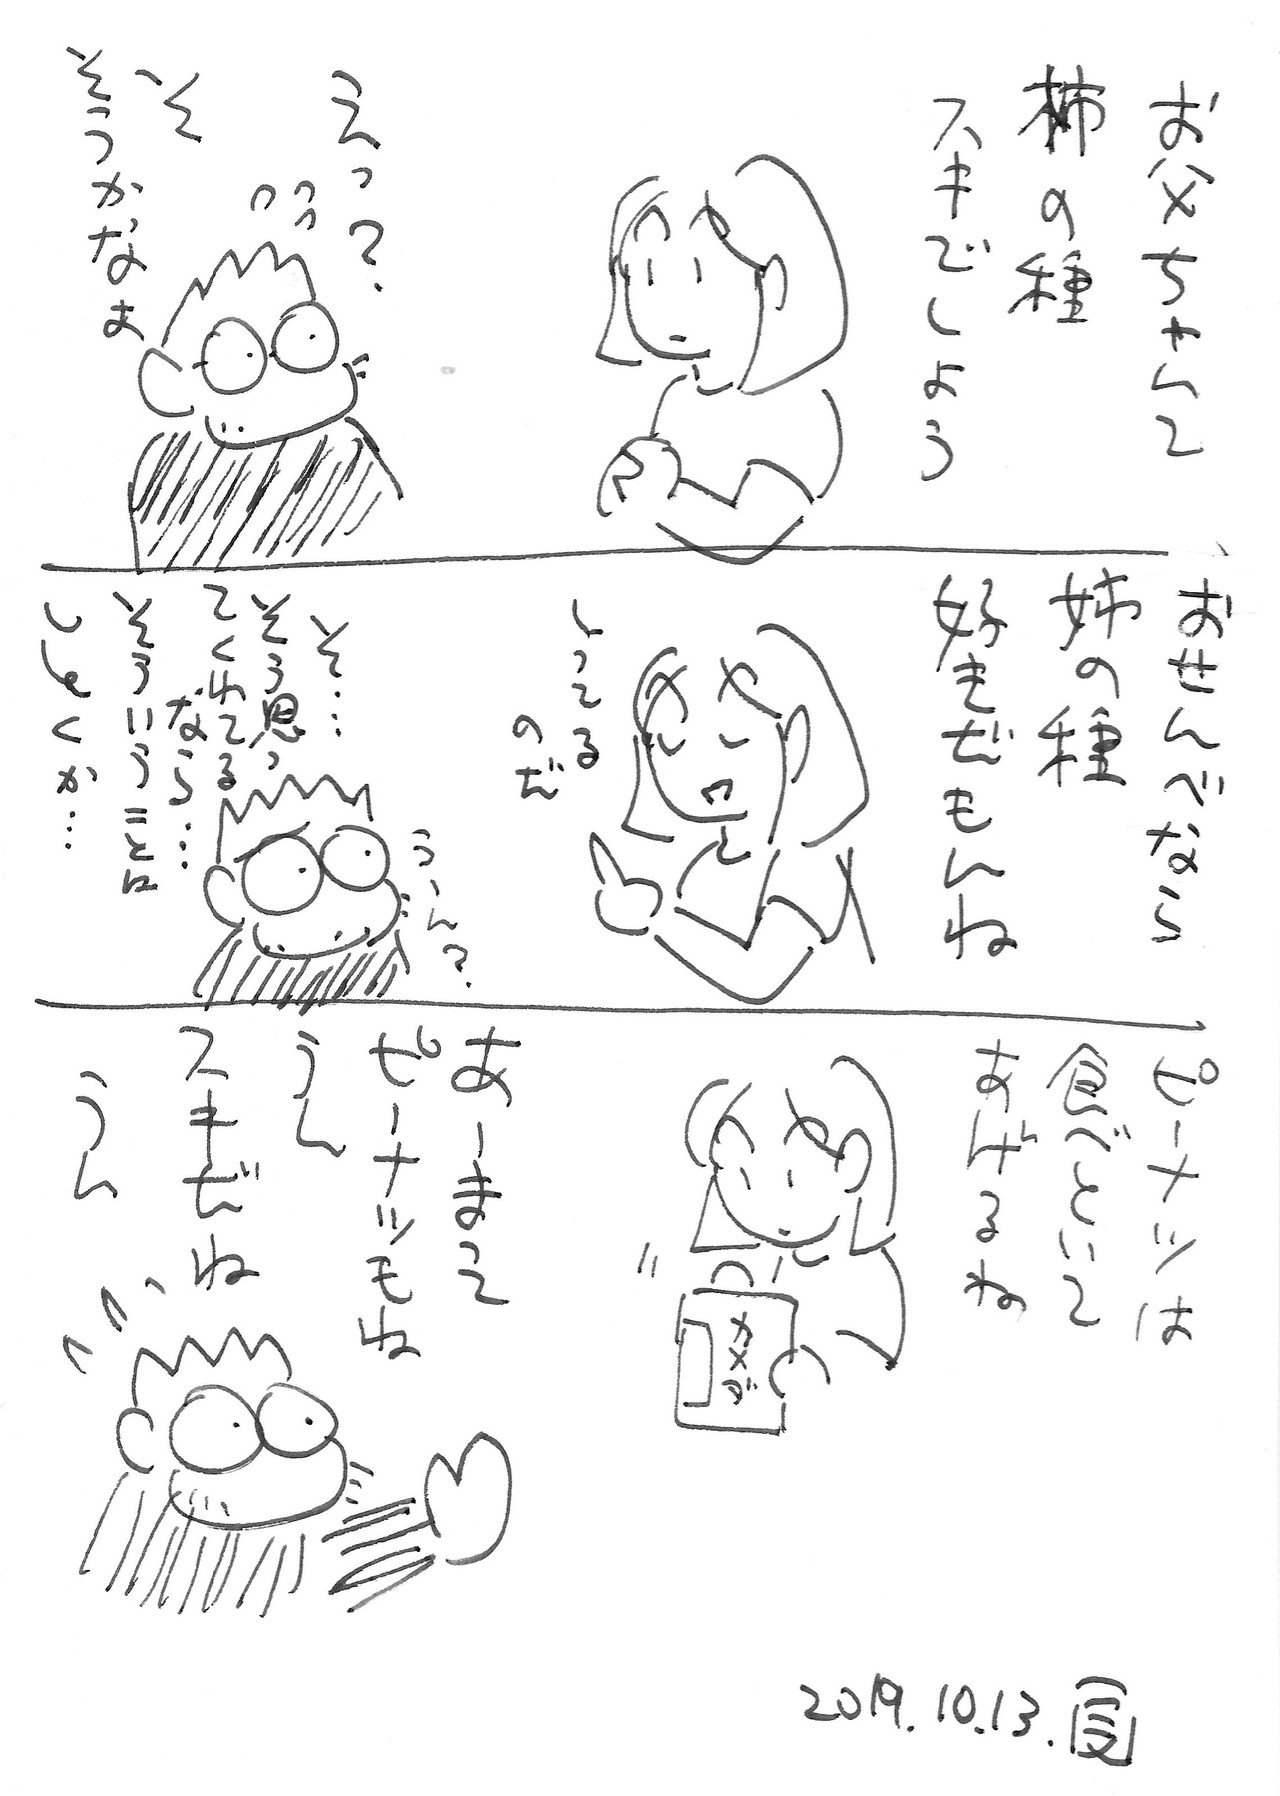 お父ちゃんて
柿の種
スキでしよう
えっ?
そ
そうかなぁ
おせんべなら
姉の種
好きだもんね
しってる
のだ
うーん?
そ…
そう思っ
てくれてる
なら…
そういうことに
しとくか…
ピーナツは
食べといて
あげるね
あーまって
ピーナッもね
うん
スキだね
うん
2019.10.13.